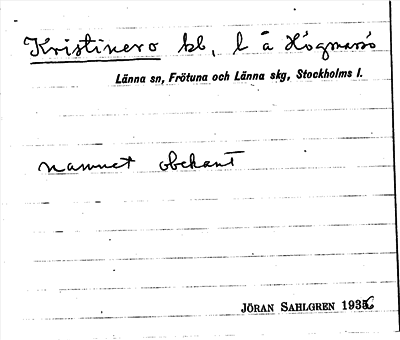 Kristinero kb, l å Högmarsö
Länna sn, Frötuna och Länna skg, Stockholms l.
namnet obekant
JÖRAN SAHLGREN 1936